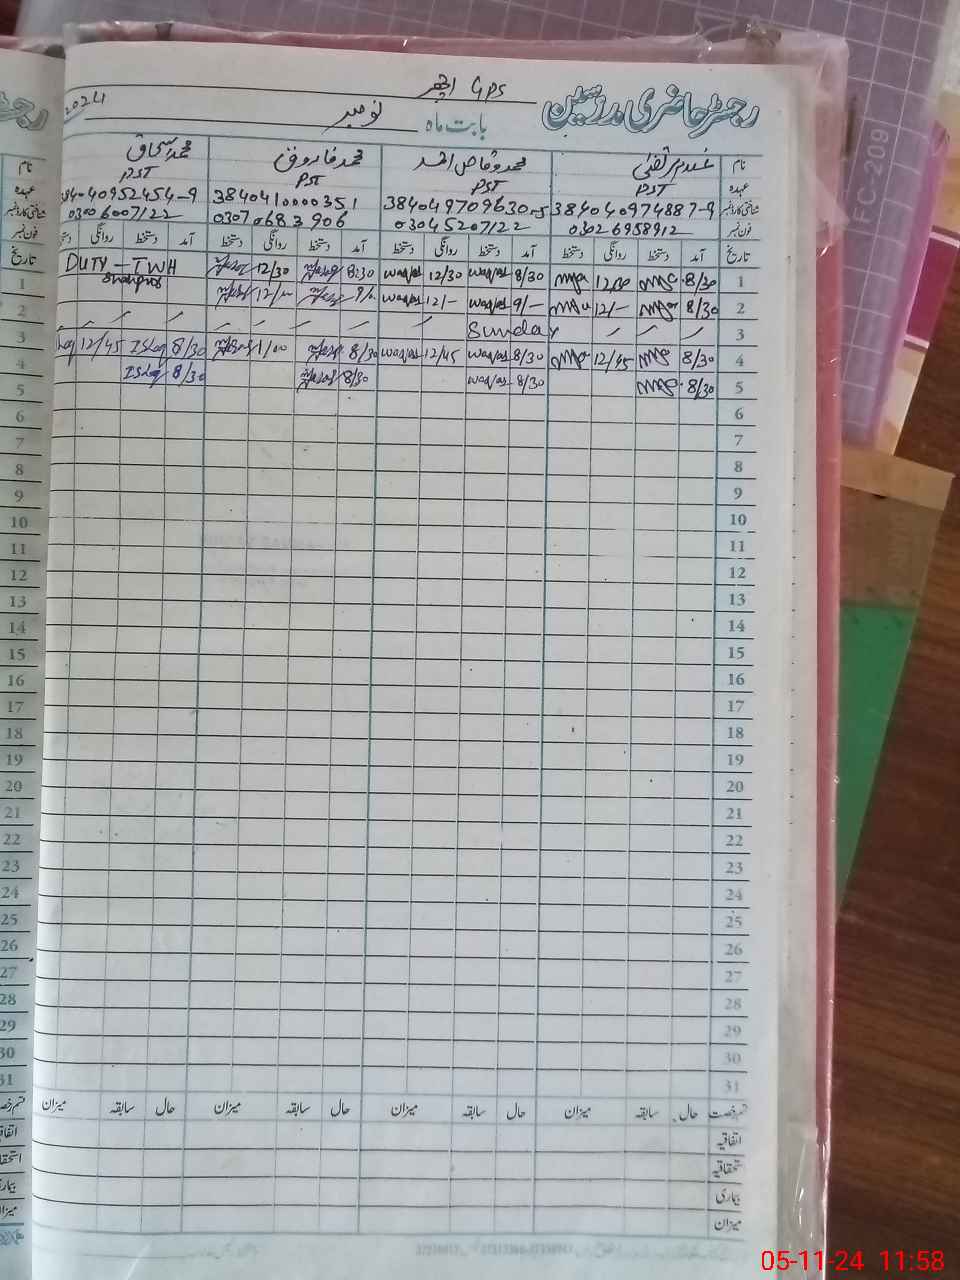 رجسٹر حاضری مدرسین
GPS اچھر
بابت ماہ نومبر 2024
نام غلام مرتضیٰ محمد وقاص احمد محمد فاروق محمد اسحاق
عہدہ PST PST PST PST
شناختی کارڈ نمبر 384040974887-9 384049709630-5 3840410000351 384040952454-9
فون نمبر 03026958912 03045207122 03070683906 03006007122
تاریخ آمد دستخط روانگی دستخط آمد دستخط روانگی دستخط آمد دستخط روانگی دستخط آمد دستخط روانگی دستخط
1 8/30 12/30 8/30 waqas 12/30 waqas 8/30 12/30 DUTY - TWH
Shahpur
2 8/30 12/- 9/- waqas 12/- waqas 9/- 12/-
3 Sunday
4 8/30 12/45 8/30 waqas 12/45 waqas 8/30 1/00 8/30 Ishaq 12/45
5 8/30 8/30 waqas 8/30 8/30 Ishaq
6
7
8
9
10
11
12
13
14
15
16
17
18
19
20
21
22
23
24
25
26
27
28
29
30
31
قسم رخصت حال سابقہ میزان حال سابقہ میزان حال سابقہ میزان حال سابقہ میزان
اتفاقیہ
استحقاقیہ
بیماری
میزان
FC-209
05-11-24 11:58